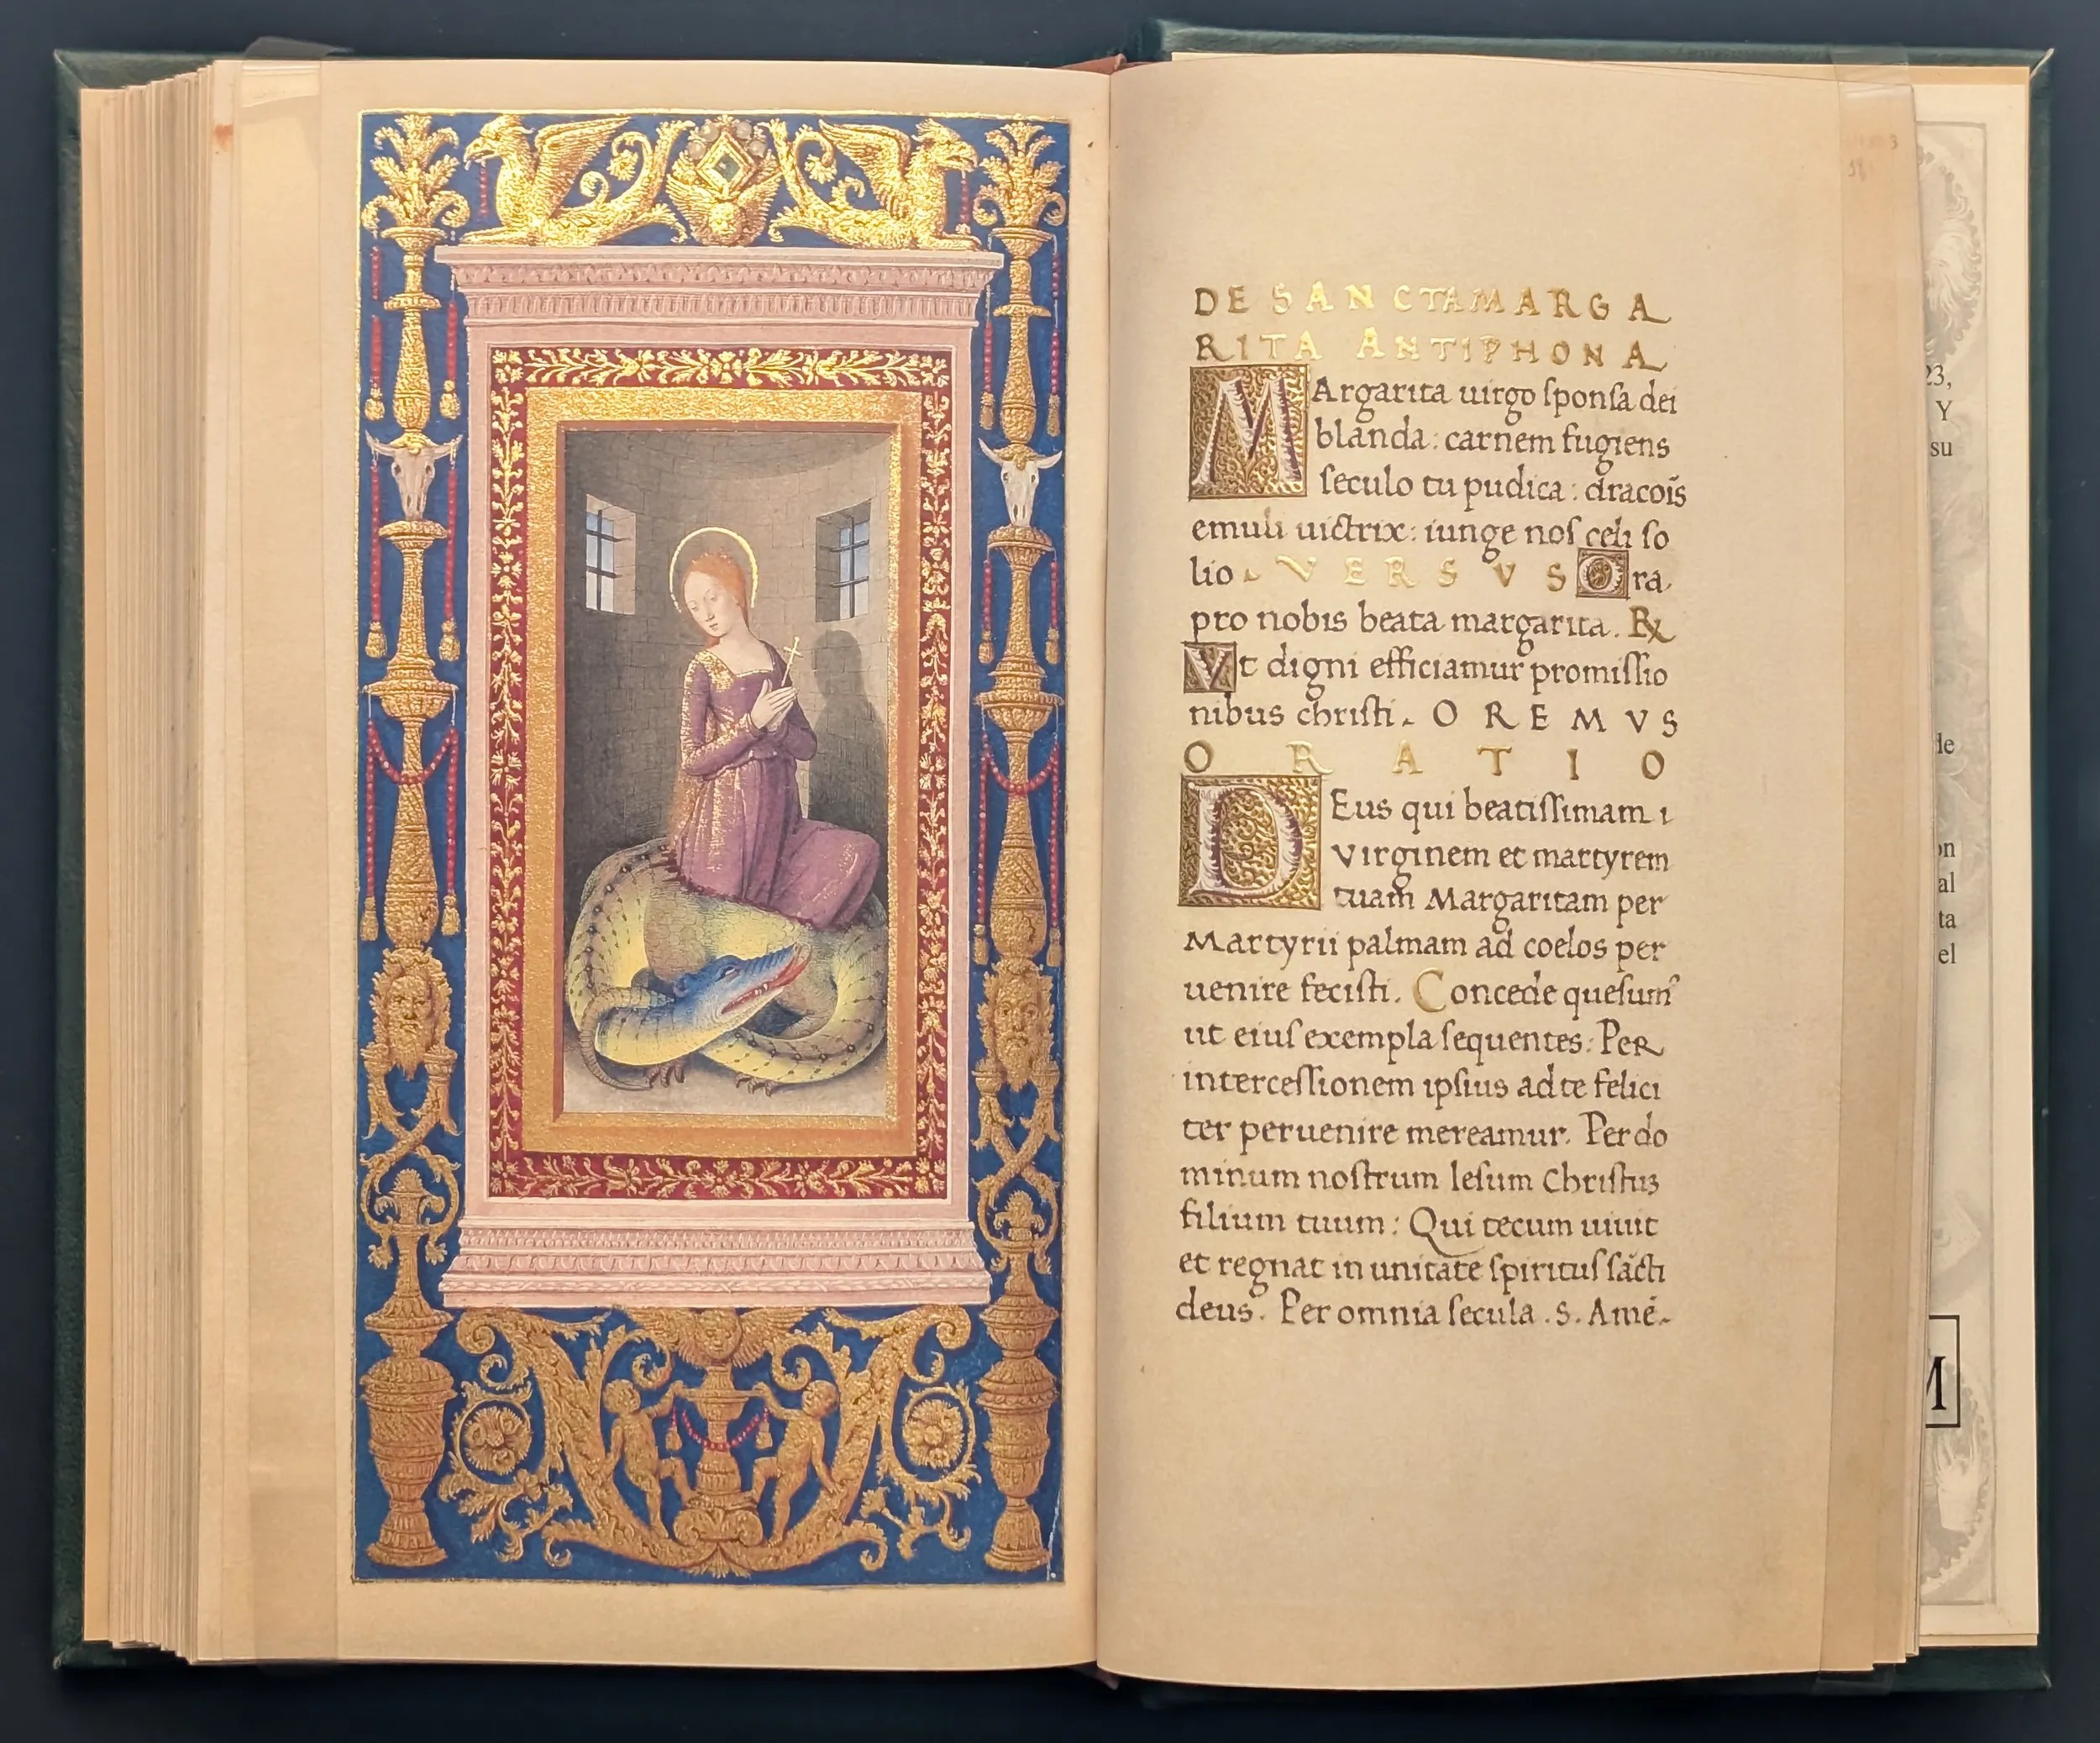 DE SANCTA MARGA
RITA ANTIPHONA
MArgarita uirgo ſponſa dei
blanda: carnem fugiens
ſeculo tu pudica: dracoīs
emuli uictrix: iunge noſ celi ſo
lio. VERSVS Ora
pro nobis beata margarita. ℟
Vt digni efficiamur promiſſio
nibus chriſti. OREMVS
ORATIO
DEus qui beatiſſimam i
Virginem et martyrem
tuam Margaritam per
Martyrii palmam ad coelos per
uenire feciſti. Concede queſum᷒
ut eiuſ exempla ſequentes: PeR
interceſſionem ipſius ad te felici
ter peruenire mereamur. Per do
minum noſtrum Ieſum Chriſtuꝫ
filium tuum: Qui tecum uiuit
et regnat in unitate ſpirituſ ſācti
deus. Per omnia ſecula .S. Amē.
23,
Y
su
de
on
al
ta
el
M